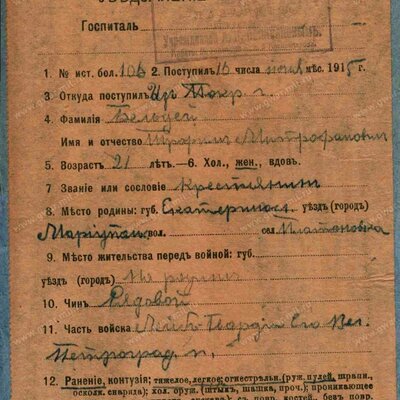 Госпиталь
1. № ист. бол. 106 2. Поступил 16 числа июня мѣс. 1915 г.
3. Откуда поступил Из Покр г.
4. Фамилія Бельдей
Имя и отчество Митрофанович
5. Возраст 21 лѣт.—6. Хол., жен., вдов.
7. Званіе или сословіе Крестьянин
8. Мѣсто родины: губ. Екатеринос. уѣзд (город)
Маріупол вол. сел. Платоновка
9. Мѣсто жительства перед войной: губ.
уѣзд (город) На родинѣ
10. Чин Рядовой
11. Часть войска Лейб Гвардіи Его Вел.
Петроград п.
12. Раненіе, контузія; тяжелое, легкое; огнестрѣльн. (руж. пулей, шрапн.,
осколк. снаряда); хол. оруж. (штык, шашка, проч.); проникающее